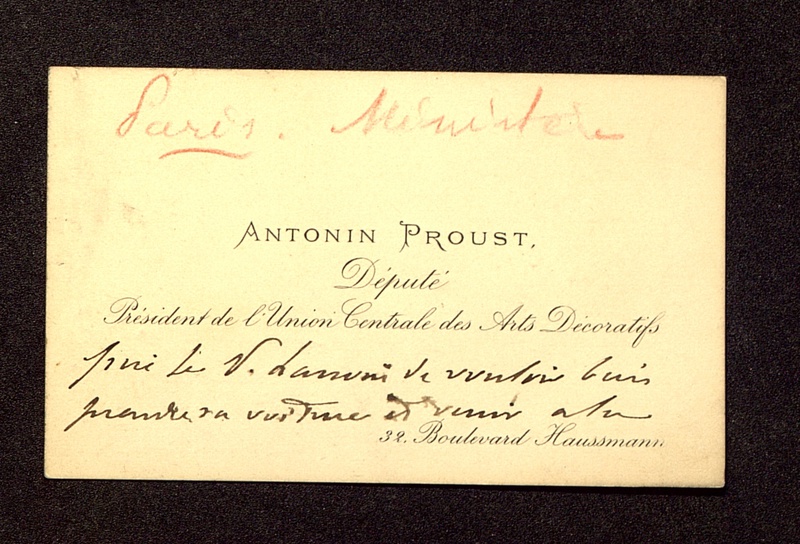 Paris. Ministère
ANTONIN PROUST,
Député
Président de l'Union Centrale des Arts Décoratifs
prie le D. de vouloir bien
prendre sa voiture et venir
32. Boulevard Haussmann